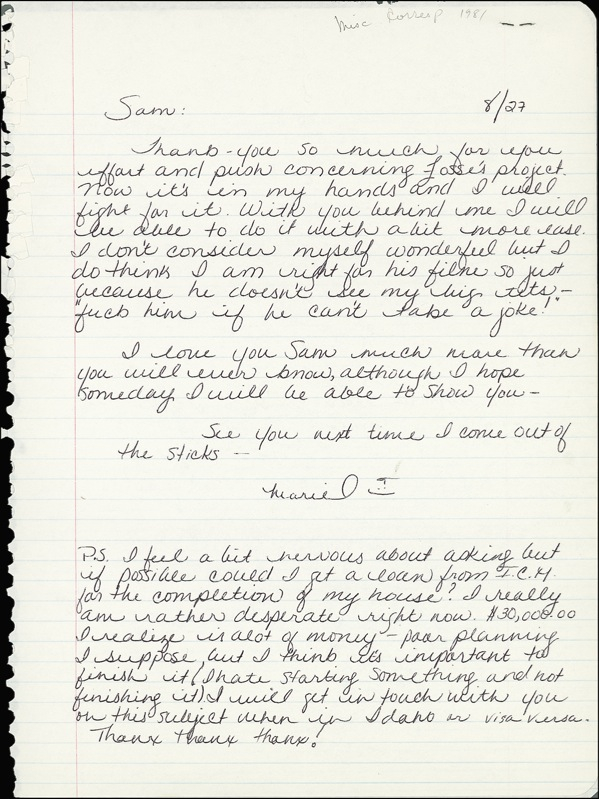 Misc Corresp 1981
Sam: 8/27
Thank-you so much for you
effort and push concerning Fosse's project.
Now it's in my hands and I will
fight for it. With you behind me I will
be able to do it with a bit more ease.
I don't consider myself wonderful but I
do think I am right for his film so just
because he doesn't see my big tits –
"fuck him if he can't take a joke!"
I love you Sam much more than
you will ever know, although I hope
someday I will be able to show you –
See you next time I come out of
the sticks –
Mariel
P.S. I feel a bit nervous about asking but
if possible could I get a loan from I.C.M.
for the completion of my house? I really
am rather desperate right now. $30,000.00
I realize is alot of money – poor planning
I suppose, but I think it's important to
finish it (I hate starting something and not
finishing it) I will get in touch with you
on this subject when in Idaho or visa versa.
Thanx thanx thanx!